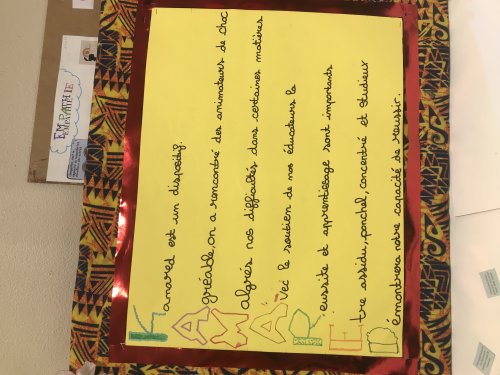 Kamared est un dispositif.
Agréable, on a rencontré des animateurs de choc
Malgrés nos difficultés dans certaines matières
Avec le soutien de nos éducateurs la
Réussite et apprentissage sont importants
Etre assidu, ponctuel, concentré et Studieux
Démontrera notre capacité de réussir.
EMPATHIE